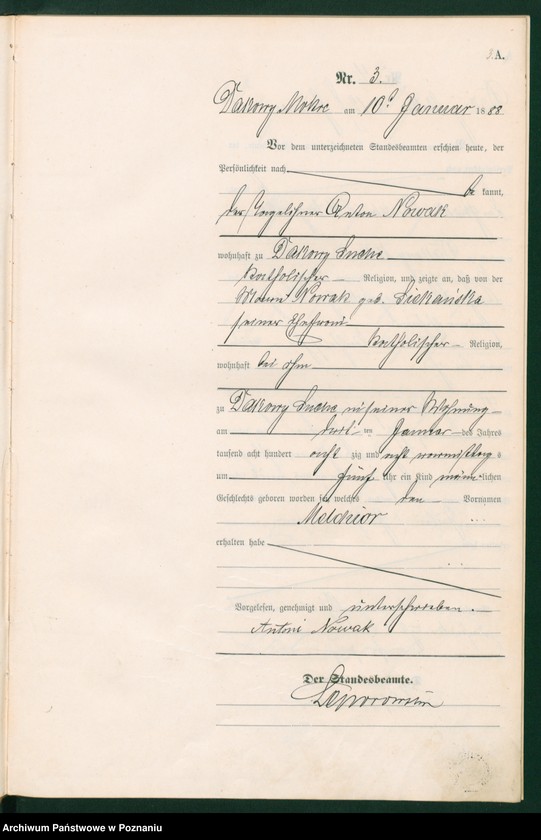 A.
Nr. 3.
Dakowy Mokre am 10t Januar 1888
Vor dem unterzeichneten Standesbeamten erschien heute, der
Persönlichkeit nach
be kannt,
der Tagelöhner Anton Nowak
wohnhaft zu Dakowy Suche
katholischer Religion, und zeigte an, daß von der
Nowak geb.
seiner Ehefrau
katholischer Religion,
wohnhaft bei ihm
zu Dakowy Suche in seiner Wohnung
am drei ten Januar des Jahres
tausend acht hundert acht zig und acht vormittags
um fünf Uhr ein Kind männlichen
Geschlechts geboren worden sei, welches den Vornamen
Melchior
erhalten habe
Vorgelesen, genehmigt und unterschrieben.
Antoni Nowak
Der Standesbeamte.
Archiwum Państwowe w Poznaniu